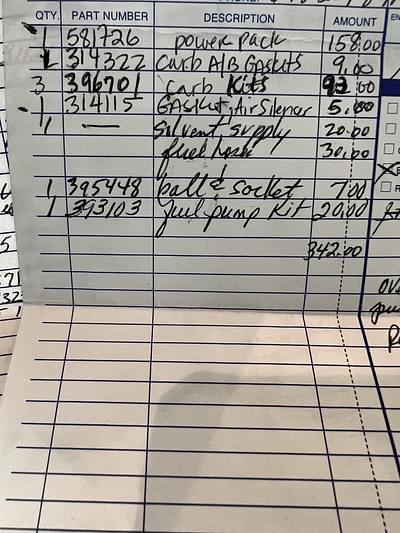 QTY. PART NUMBER DESCRIPTION AMOUNT
1 581726 power pack 158.00
1 314322 Carb A/B Gaskets 9.00
3 396701 Carb Kits 93.00
1 314115 GASKET, Air Silencer 5.00
1 — Solvent supply 20.00
fuel hose 30.00
1 395448 ball & socket 7.00
1 393103 fuel pump Kit 20.00
342.00